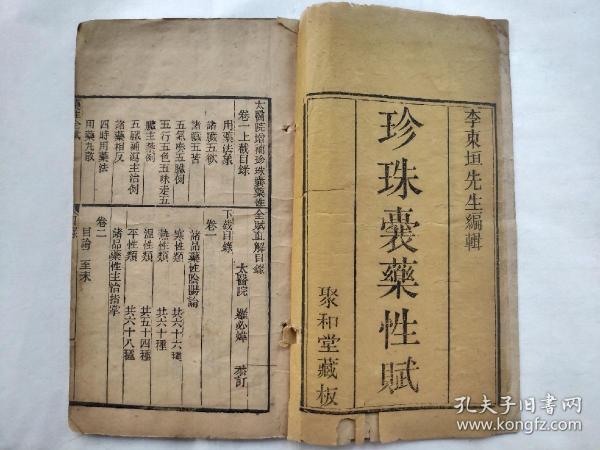 李東垣先生編輯
珍珠囊藥性賦
聚和堂藏板
太醫院增補珍珠囊藥性全賦直解目錄
卷一上截目錄
用藥法象
諸臟五欲
諸臟五苦
五氣湊五臟例
五行五色五味走五
臟主禁例
五臟補瀉主治例
諸藥相反
四時用藥法
用藥丸散
下截目錄
太醫院 羅必煒 叅訂
卷一
諸品藥性陰陽論
寒性類 共六十六種
熱性類 共六十種
溫性類 共五十四種
平性類 共六十八種
卷二
諸品藥性主治指掌
目論 至末
孔夫子旧书网
www.kongfz.com